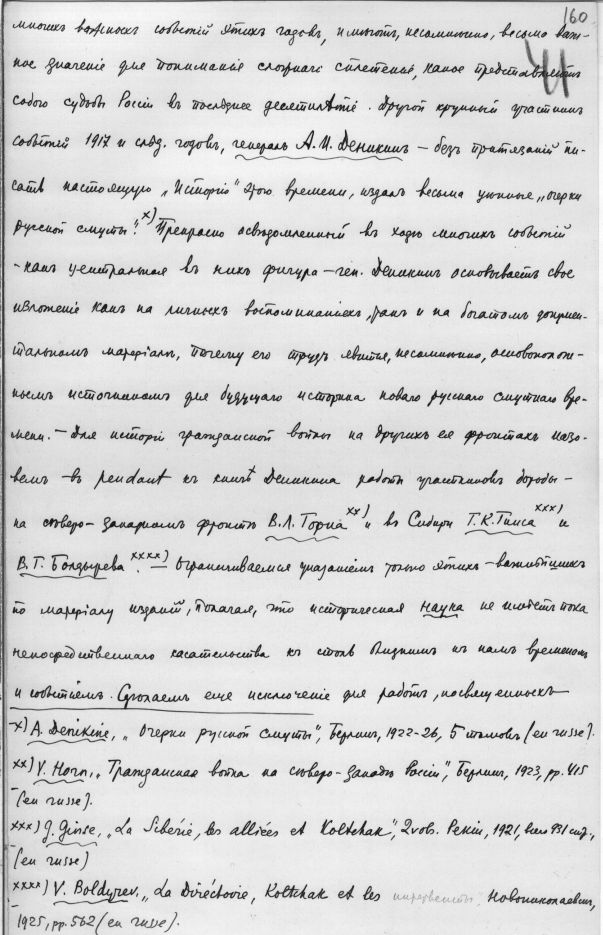 160
41
многихъ важныхъ событiй этихъ годовъ, и имѣютъ, несомнѣнно, весьма важ-
ное значенiе для пониманiя сложнаго сплетенiя, какое представляетъ
собою судьба Россiи въ послѣднее десятилѣтiе. Другой крупный участникъ
событiй 1917 и слѣд. годовъ, генералъ А. И. Деникинъ — безъ притязанiй пи-
сать настоящую „Исторiю" этого времени, издалъ весьма цѣнные „Очерки
русской смуты".x) Прекрасно освѣдомленный въ ходѣ многихъ событiй
- какъ центральная въ нихъ фигура - ген. Деникинъ основываетъ свое
изложенiе какъ на личныхъ воспоминанiяхъ, такъ и на богатомъ докумен-
тальномъ матерiалѣ, почему его трудъ явится, несомнѣнно, основополож-
нымъ источникомъ для будущаго историка новаго русскаго смутнаго вре-
мени. — Для исторiи гражданской войны на другихъ ея фронтахъ назо-
вемъ — въ pendant къ книгѣ Деникина работы участниковъ борьбы —
на сѣверо-западномъ фронтѣ В. Л. Горна xx) и въ Сибири Г. К. Гинса xxx) и
В. Г. Болдырева. xxxx) — Ограничиваемся указанiемъ только этихъ - важнѣйшихъ
по матерiалу изданiй, полагая, что историческая наука не имѣетъ пока
непосредственнаго касательства къ столь близкимъ къ намъ временамъ
и событiямъ. Сдѣлаемъ еще исключенiе для работъ, посвященныхъ
x) A. Denikine, „Очерки русской смуты", Берлинъ, 1922-26, 5 томовъ (en russe).
xx) V. Horn, „Гражданская война на сѣверо-западѣ Россiи", Берлинъ, 1923, pp. 415
(en russe).
xxx) G. Ginse, „La Sibérie, les alliées et Koltchak", 2 vols. Pekin, 1921, всего 931 стр.,
(en russe)
xxxx) V. Boldyrev. „La Diréctoire, Koltchak et les интервенты. Новониколаевскъ,
1925, pp. 562 (en russe).